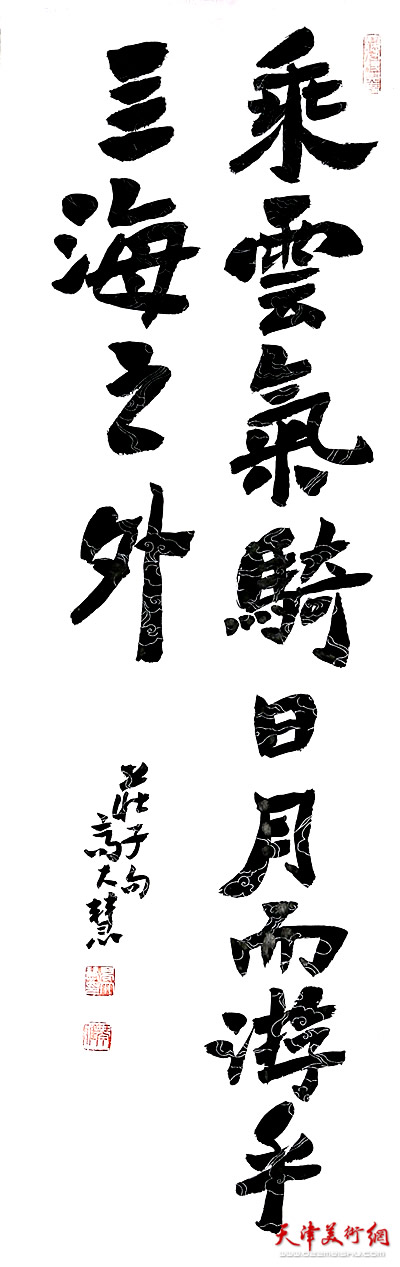 乘雲氣騎日月而游乎
亖海之外
莊子句
高大慧
天津美術網